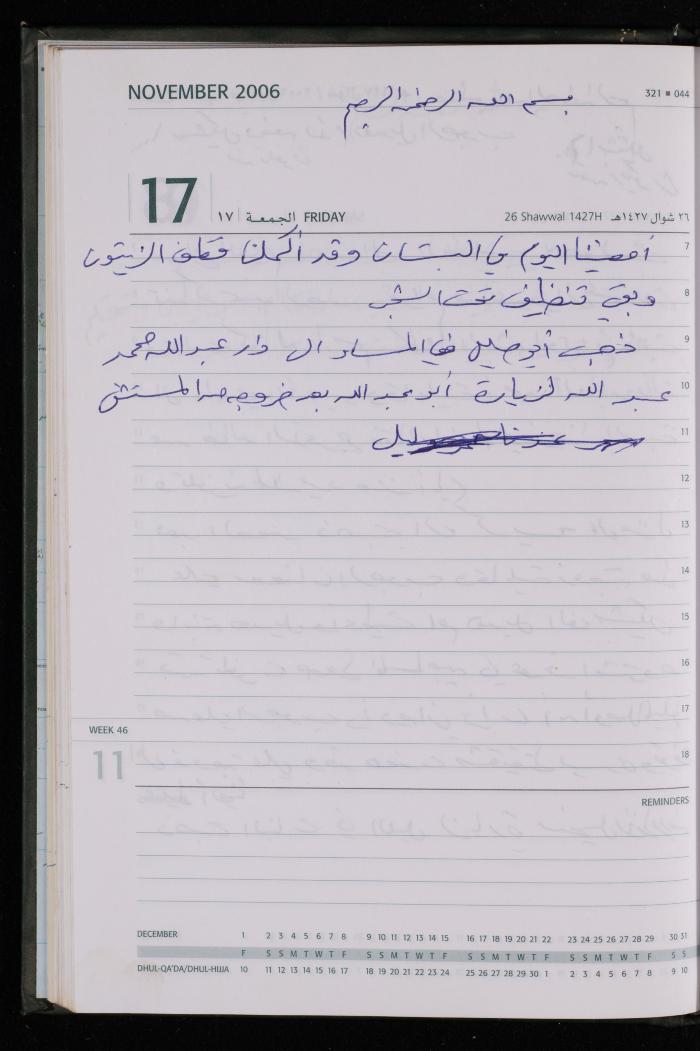 NOVEMBER 2006
321 ■ 044
بسم الله الرحمن الرحيم
17 ١٧ الجمعة FRIDAY
26 Shawwal 1427H ٢٦ شوال ١٤٢٧هـ
7 أمضينا اليوم في البستان وقد أكملنا قطف الزيتون
8 وبقي تنظيف تحت الشجر
9 ذهب أبو خليل في المساء الى دار عبد الله محمد
10 عبد الله لزيارة أبو عبد الله بعد خروجه من المستشفى
11
12
13
14
15
16
17
WEEK 46
18
11
REMINDERS
DECEMBER 1 2 3 4 5 6 7 8 9 10 11 12 13 14 15 16 17 18 19 20 21 22 23 24 25 26 27 28 29 30 31
F S S M T W T F S S M T W T F S S M T W T F S S M T W T F S S
DHUL-QA'DA/DHUL-HIJJA 10 11 12 13 14 15 16 17 18 19 20 21 22 23 24 25 26 27 28 29 30 1 2 3 4 5 6 7 8 9 10